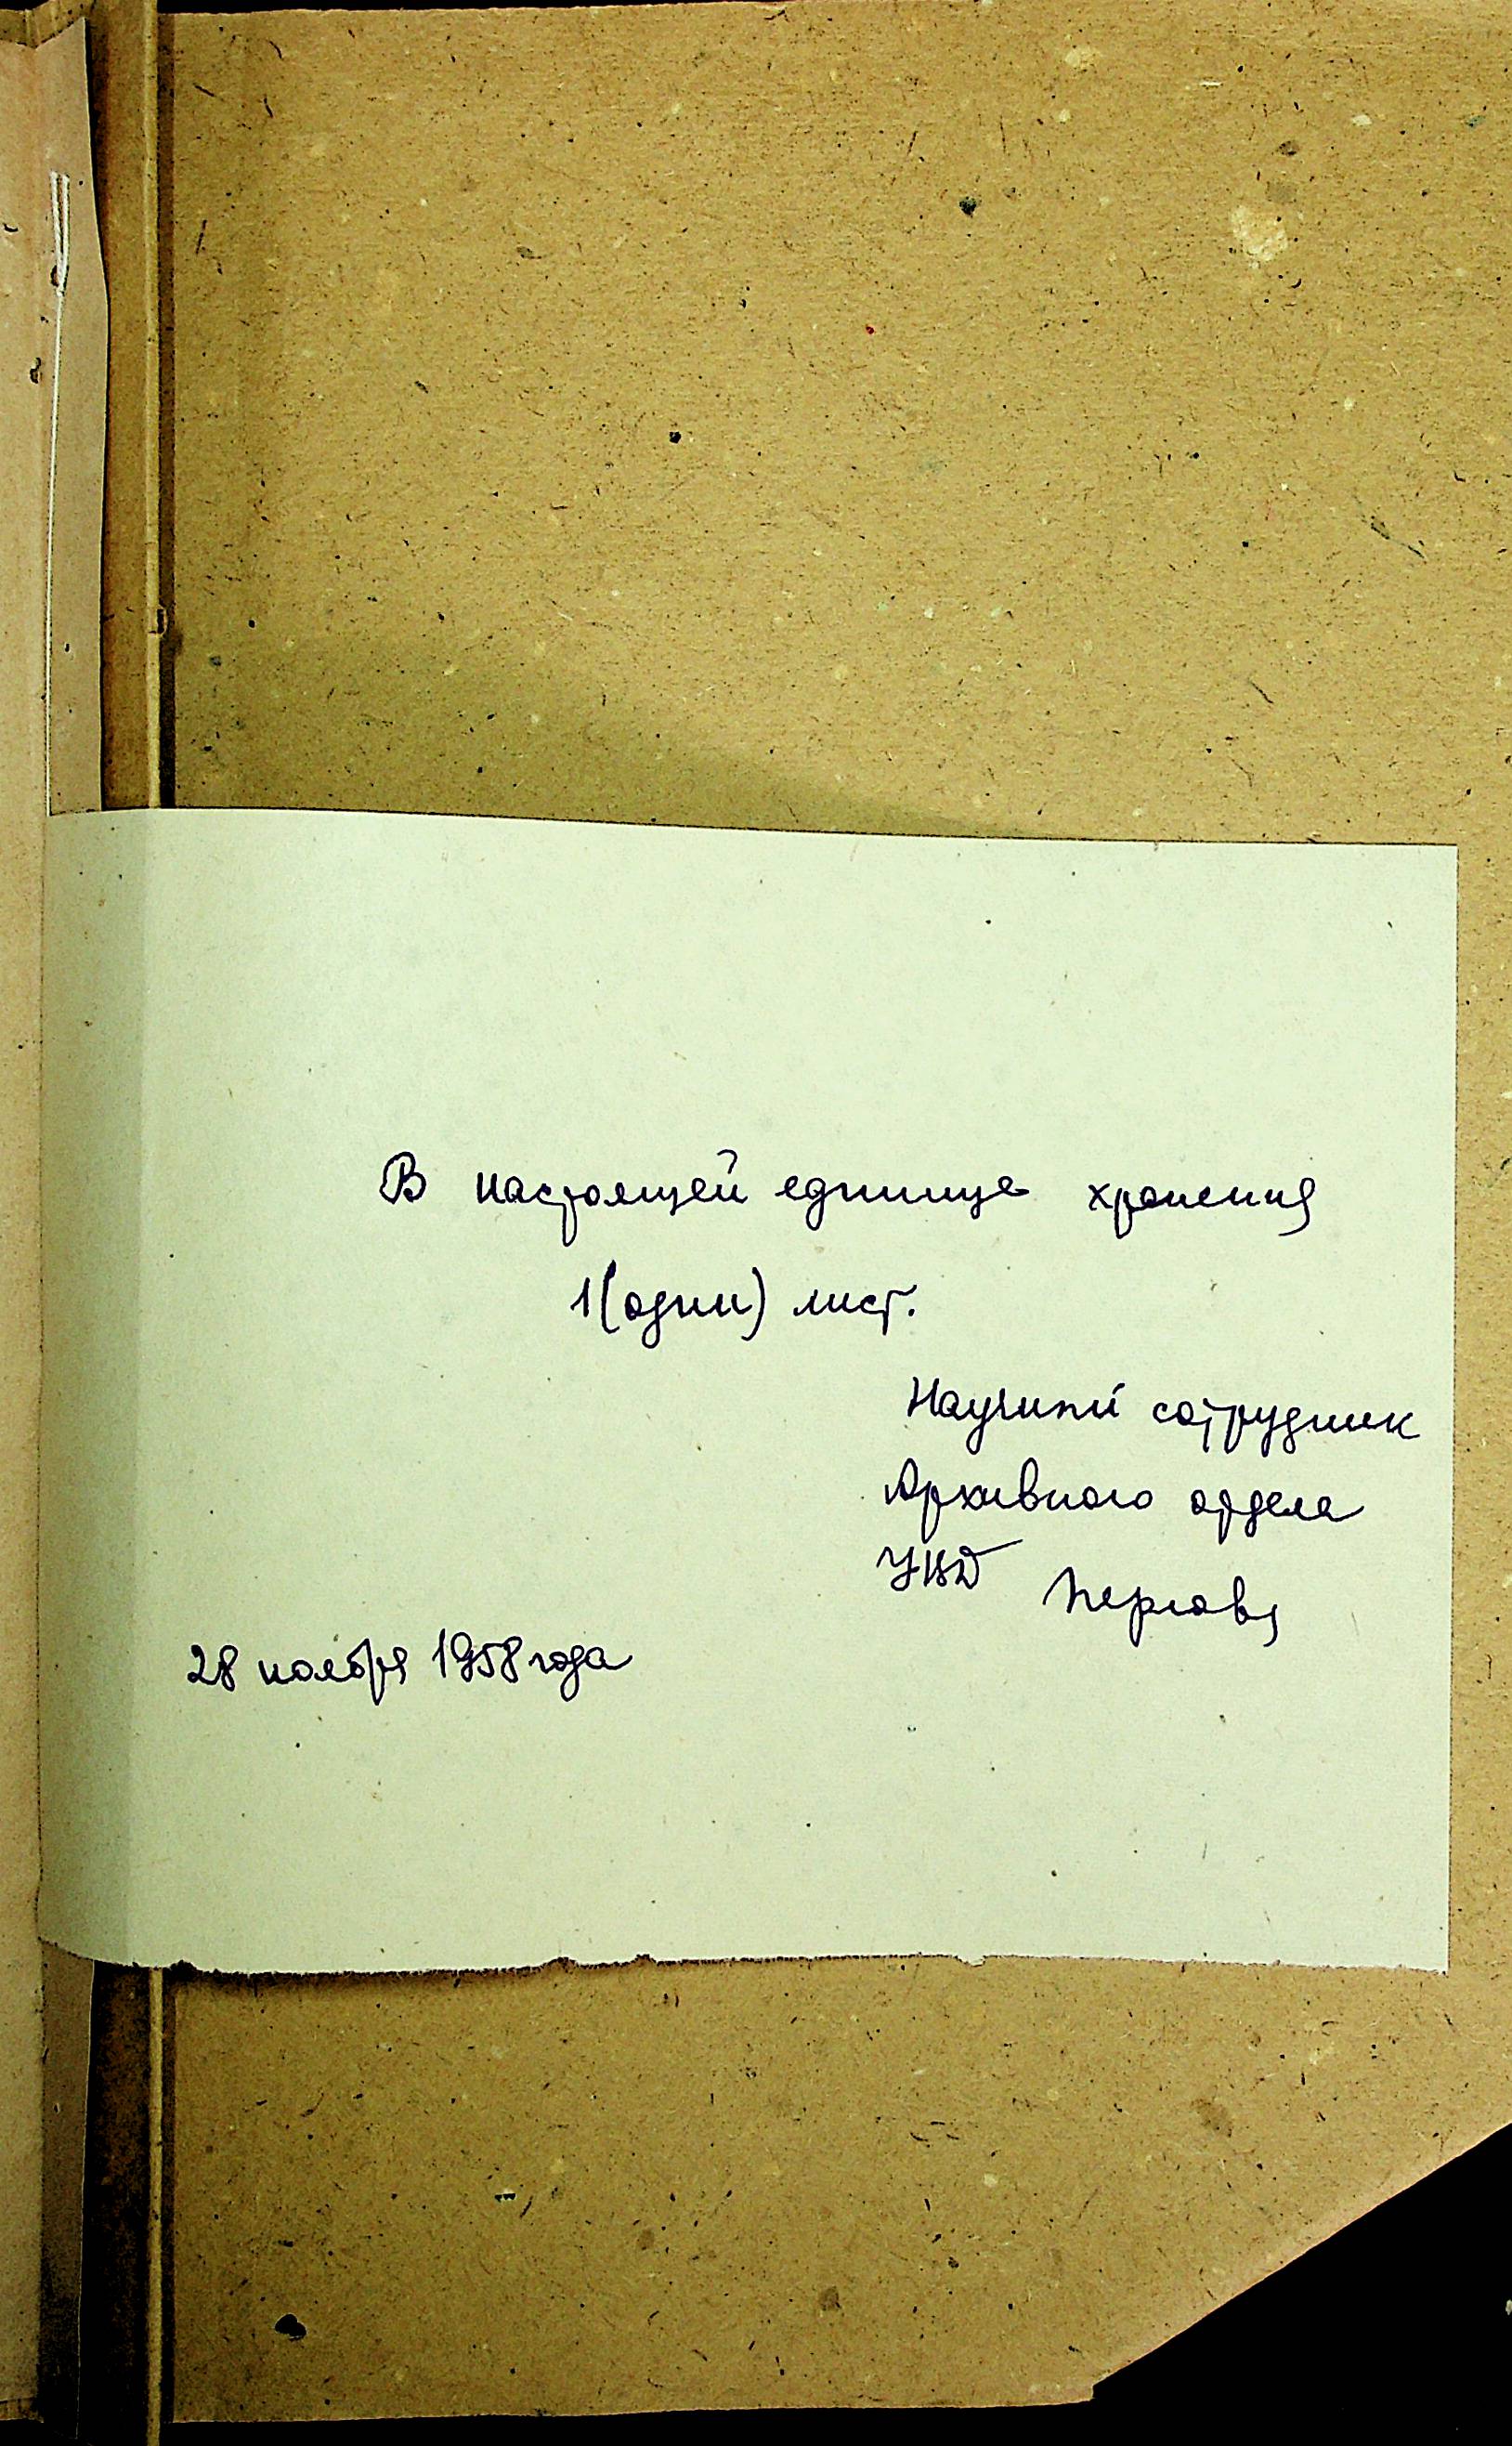 В настоящей единице хранения
1(один) лист.
Научный сотрудник
Архивного отдела
УВД
28 ноября 1958 года